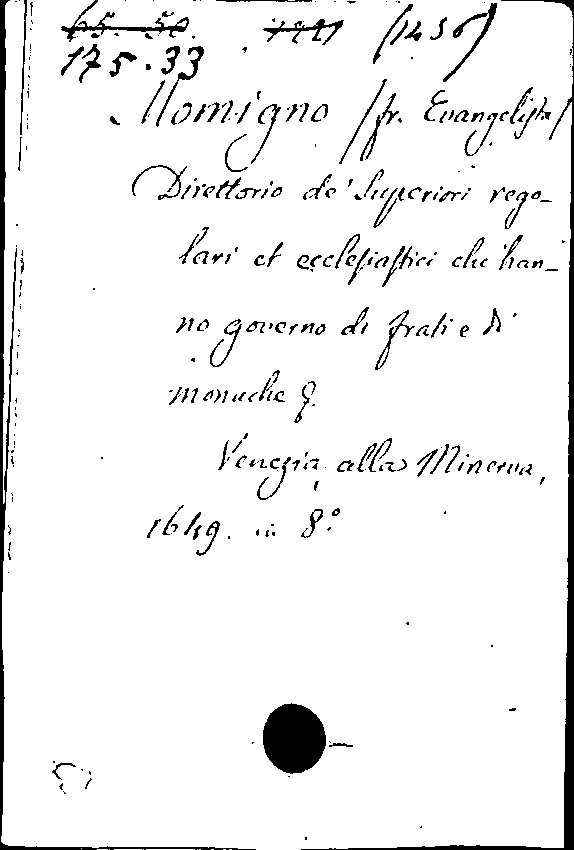 65. 50. (1456)
175.33
Momigno /fr. Evangelista/
Direttorio de' Superiori rego-
lari et ecclesiastici che han-
no governo di frati e di
monache &.
Venezia, alla Minerva,
1649. in 8.°